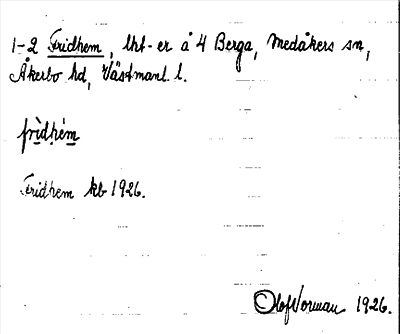 1-2 Fridhem, lht-er å 4 Berga, Medåkers sn,
Åkerbo hd, Västmanl. l.
frìdhém
Fridhem kb 1926.
Olof Norman 1926.